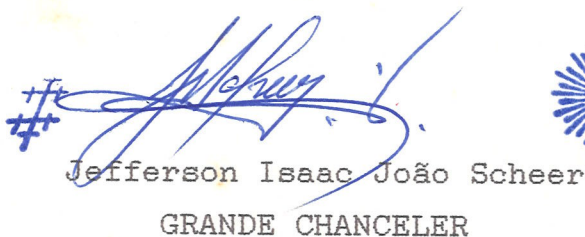 Jefferson Isaac João Scheer
GRANDE CHANCELER